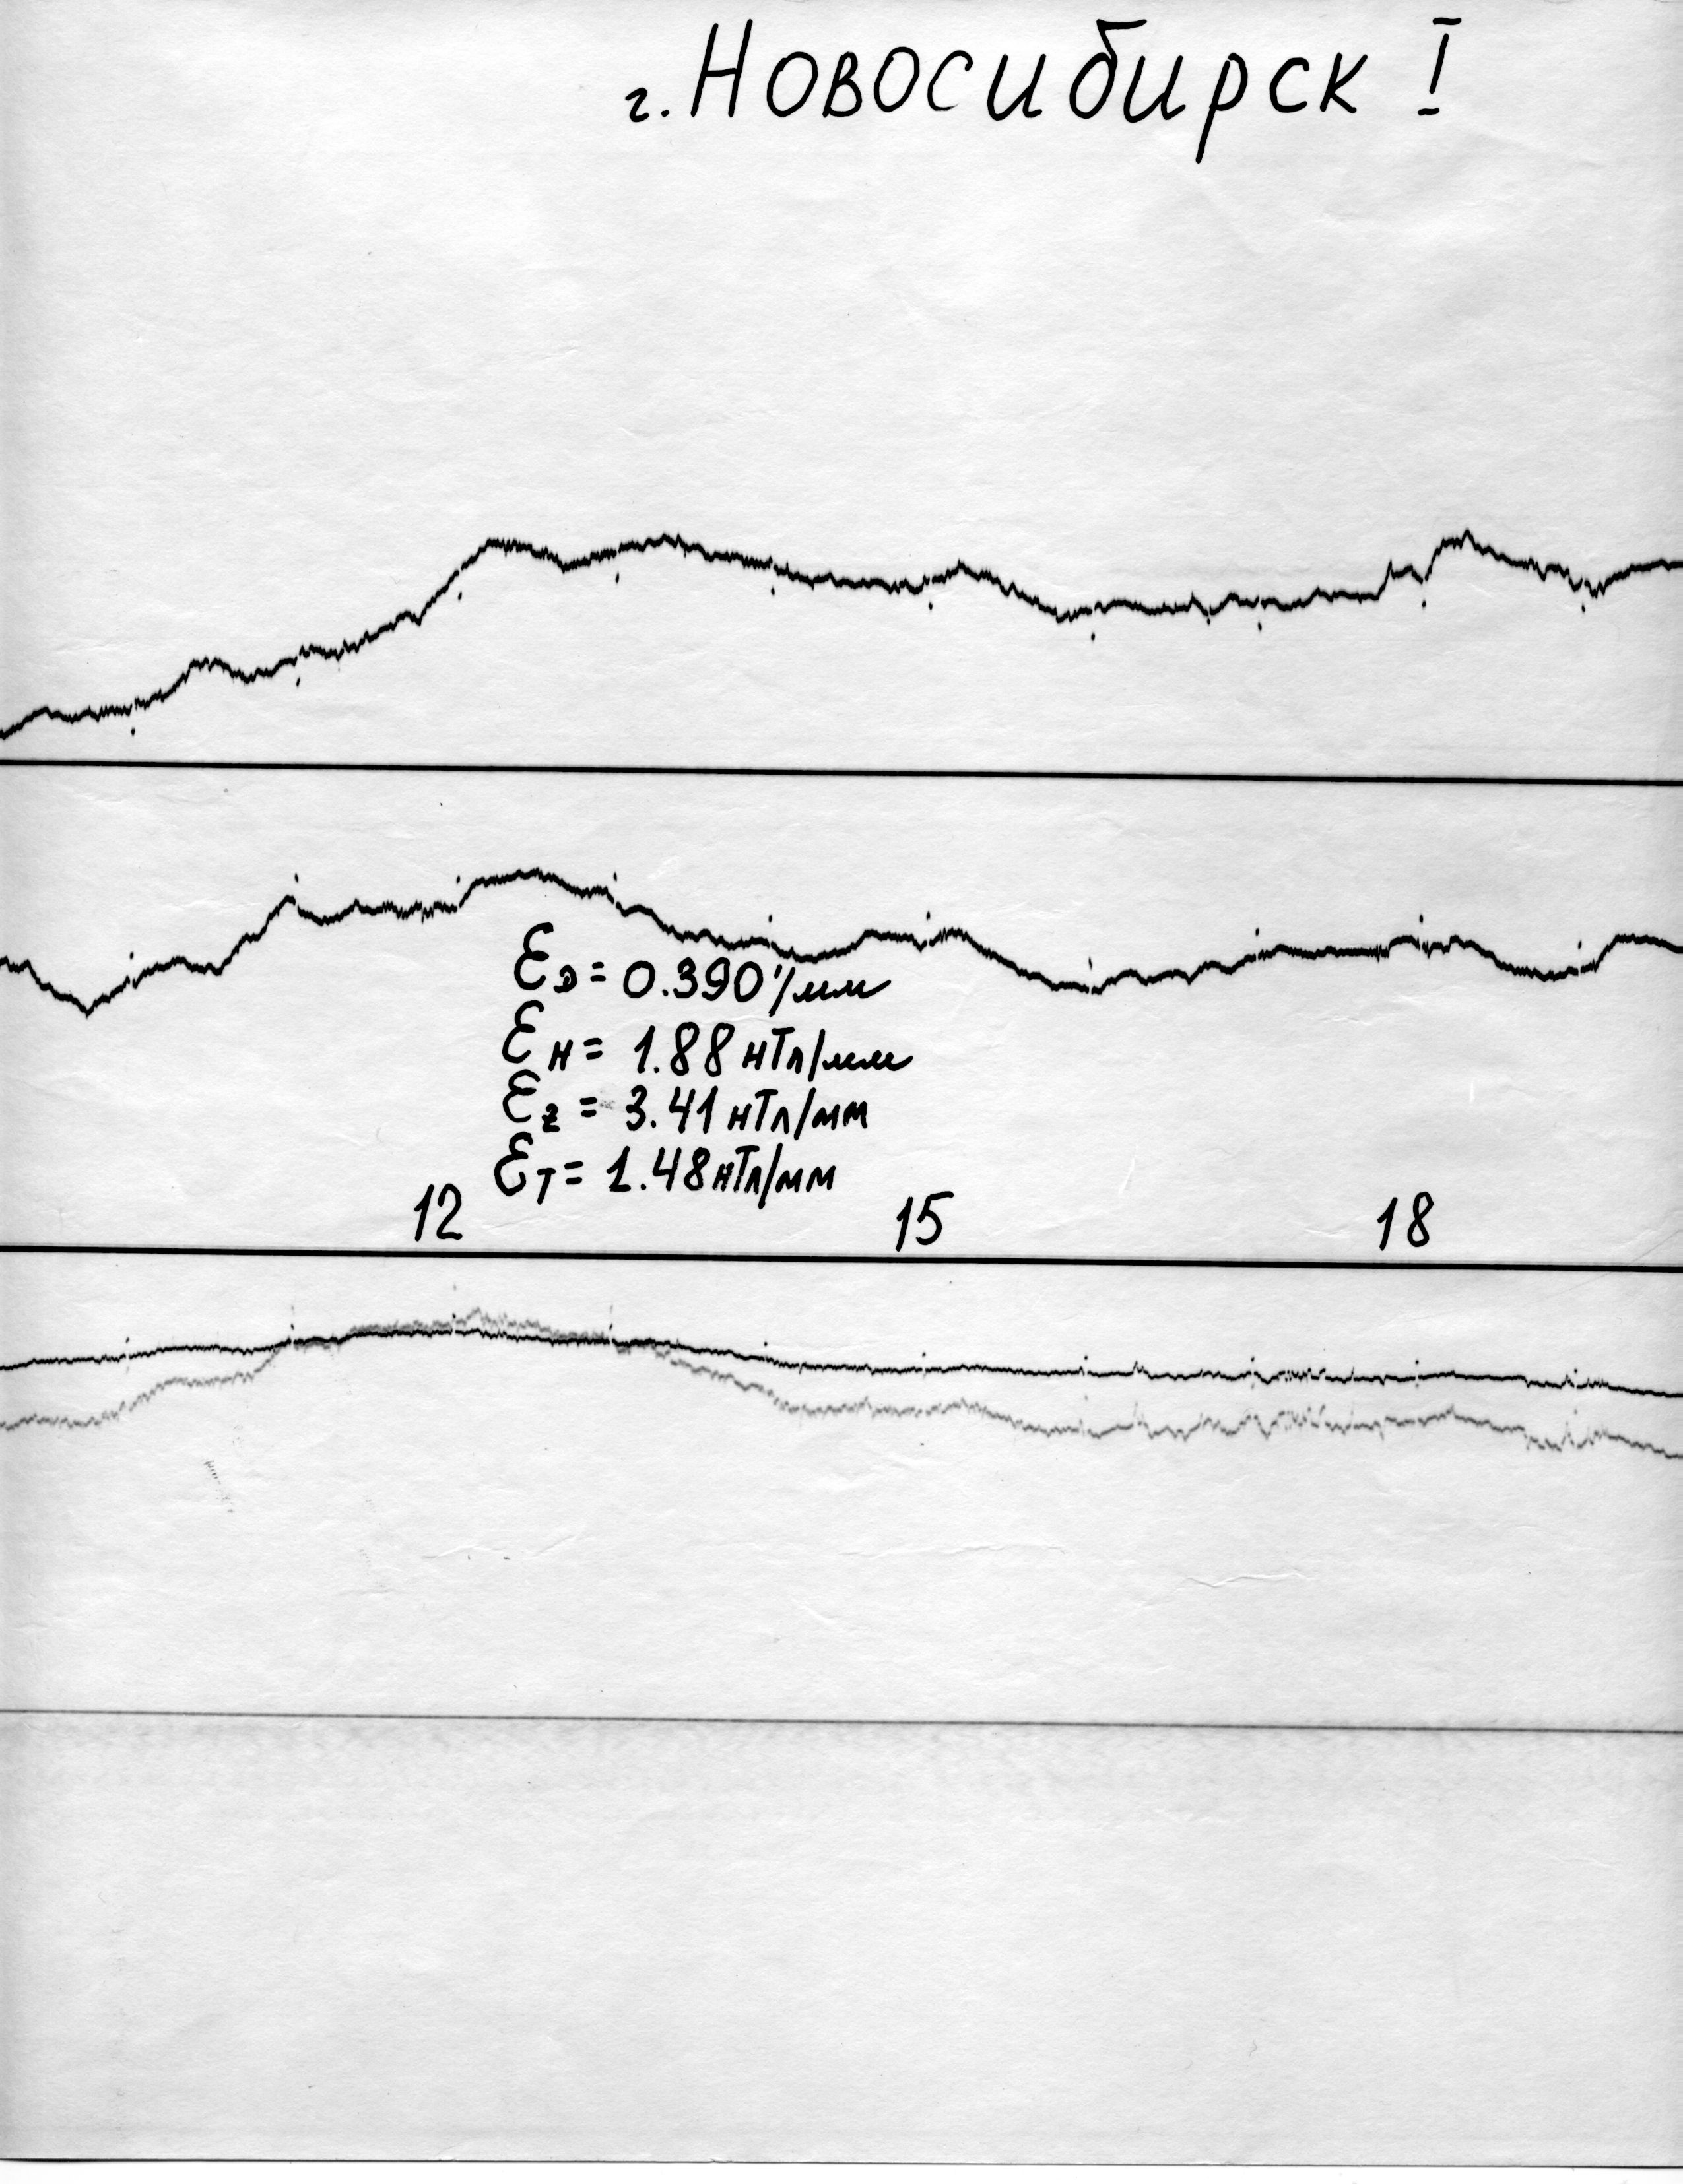 г. Новосибирск I
Ɛ_D = 0.390'/мм
Ɛ_H = 1.88 нТл/мм
Ɛ_Z = 3.41 нТл/мм
Ɛ_T = 1.48 нТл/мм
12 15 18